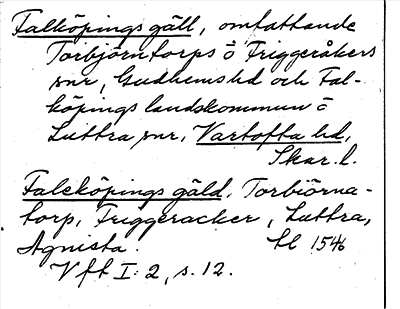 Falköpings gäll, omfattande
Torbjörntorps o Friggeråkers
snr, Gudhems hd och Fal-
köpings landskommun o
Luttra snr, Vartofta hd,
Skar. l.
Faleköpings gäld, Torbiörna-
torp, Friggeracker, Luttra,
Agnista. tl 1546
Vft I: 2, s. 12.